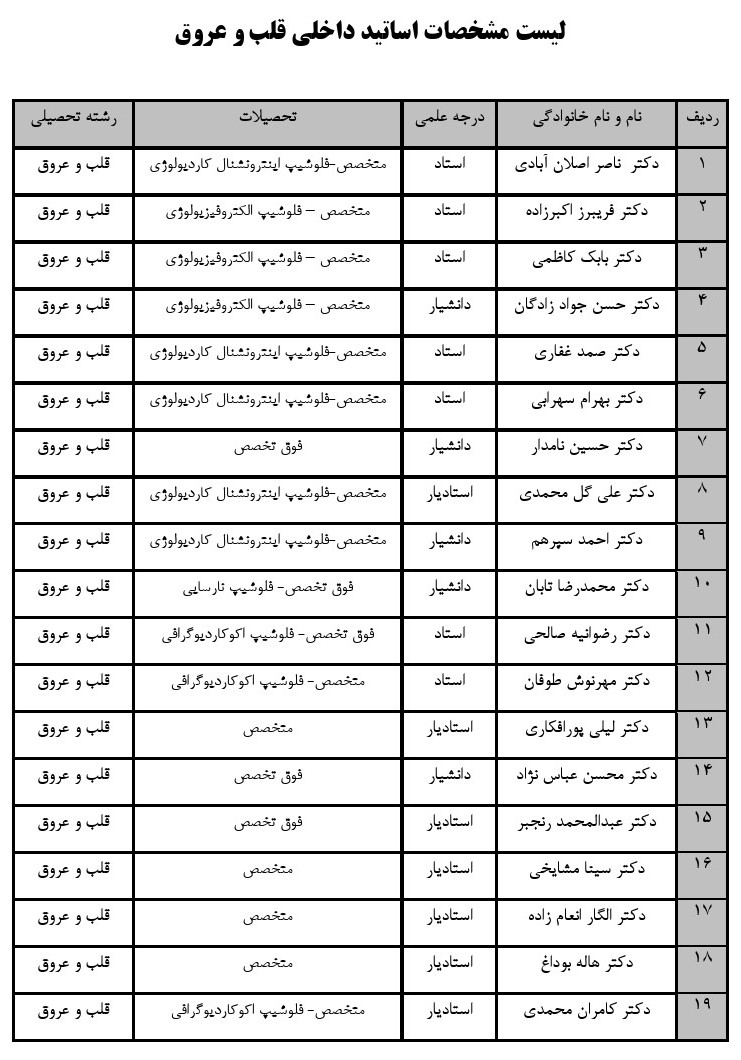 لیست مشخصات اساتید داخلی قلب و عروق
ردیف نام و نام خانوادگی درجه علمی تحصیلات رشته تحصیلی
۱ دکتر ناصر اصلان آبادی استاد متخصص-فلوشیپ اینترونشنال کاردیولوژی قلب و عروق
۲ دکتر فریبرز اکبرزاده استاد متخصص – فلوشیپ الکتروفیزیولوژی قلب و عروق
۳ دکتر بابک کاظمی استاد متخصص – فلوشیپ الکتروفیزیولوژی قلب و عروق
۴ دکتر حسن جواد زادگان دانشیار متخصص – فلوشیپ الکتروفیزیولوژی قلب و عروق
۵ دکتر صمد غفاری استاد متخصص-فلوشیپ اینترونشنال کاردیولوژی قلب و عروق
۶ دکتر بهرام سهرابی استاد متخصص-فلوشیپ اینترونشنال کاردیولوژی قلب و عروق
۷ دکتر حسین نامدار دانشیار فوق تخصص قلب و عروق
۸ دکتر علی گل محمدی استادیار متخصص-فلوشیپ اینترونشنال کاردیولوژی قلب و عروق
۹ دکتر احمد سپرهم دانشیار متخصص-فلوشیپ اینترونشنال کاردیولوژی قلب و عروق
۱۰ دکتر محمدرضا تابان دانشیار فوق تخصص- فلوشیپ نارسایی قلب و عروق
۱۱ دکتر رضوانیه صالحی استاد فوق تخصص- فلوشیپ اکوکاردیوگرافی قلب و عروق
۱۲ دکتر مهرنوش طوفان استاد متخصص- فلوشیپ اکوکاردیوگرافی قلب و عروق
۱۳ دکتر لیلی پورافکاری استادیار متخصص قلب و عروق
۱۴ دکتر محسن عباس نژاد دانشیار فوق تخصص قلب و عروق
۱۵ دکتر عبدالمحمد رنجبر استادیار فوق تخصص قلب و عروق
۱۶ دکتر سینا مشایخی استادیار متخصص قلب و عروق
۱۷ دکتر الگار انعام زاده استادیار متخصص قلب و عروق
۱۸ دکتر هاله بوداغ استادیار متخصص قلب و عروق
۱۹ دکتر کامران محمدی استادیار متخصص- فلوشیپ اکوکاردیوگرافی قلب و عروق